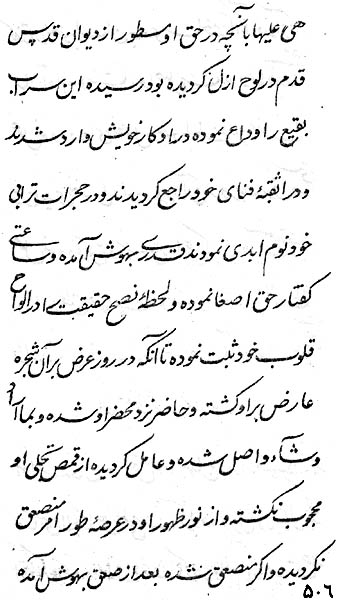 هی علیها بآنچه در حق او مسطور از دیوان قدس
قدم در لوح ازل گردیده بود رسیده این سراب
بقیع را وداع نموده در ادکار خویش وارد شدند
و در اثقبهٔ فنای خود راجع گردیدند و در حجرات ترابی
خود نوم ابدی نمودند قدری بهوش آمده و ساعتی
گفتار حق اصغا نموده و لحظهٔ نصح حقیقت را در الواح
قلوب خود ثبت نموده تا آنکه در روز عرض بر آن شجره
عارض بر او گشته و حاضر نزد محضر او شده و بما اراد
و شآء واصل شده و عامل گردیده از قمص تجلی او
محجوب نگشته و از نور ظهور او در عرصهٔ طور امر منصعق
نگردیده و اگر منصعق شده بعد از صعق بهوش آمده
۵۰۶